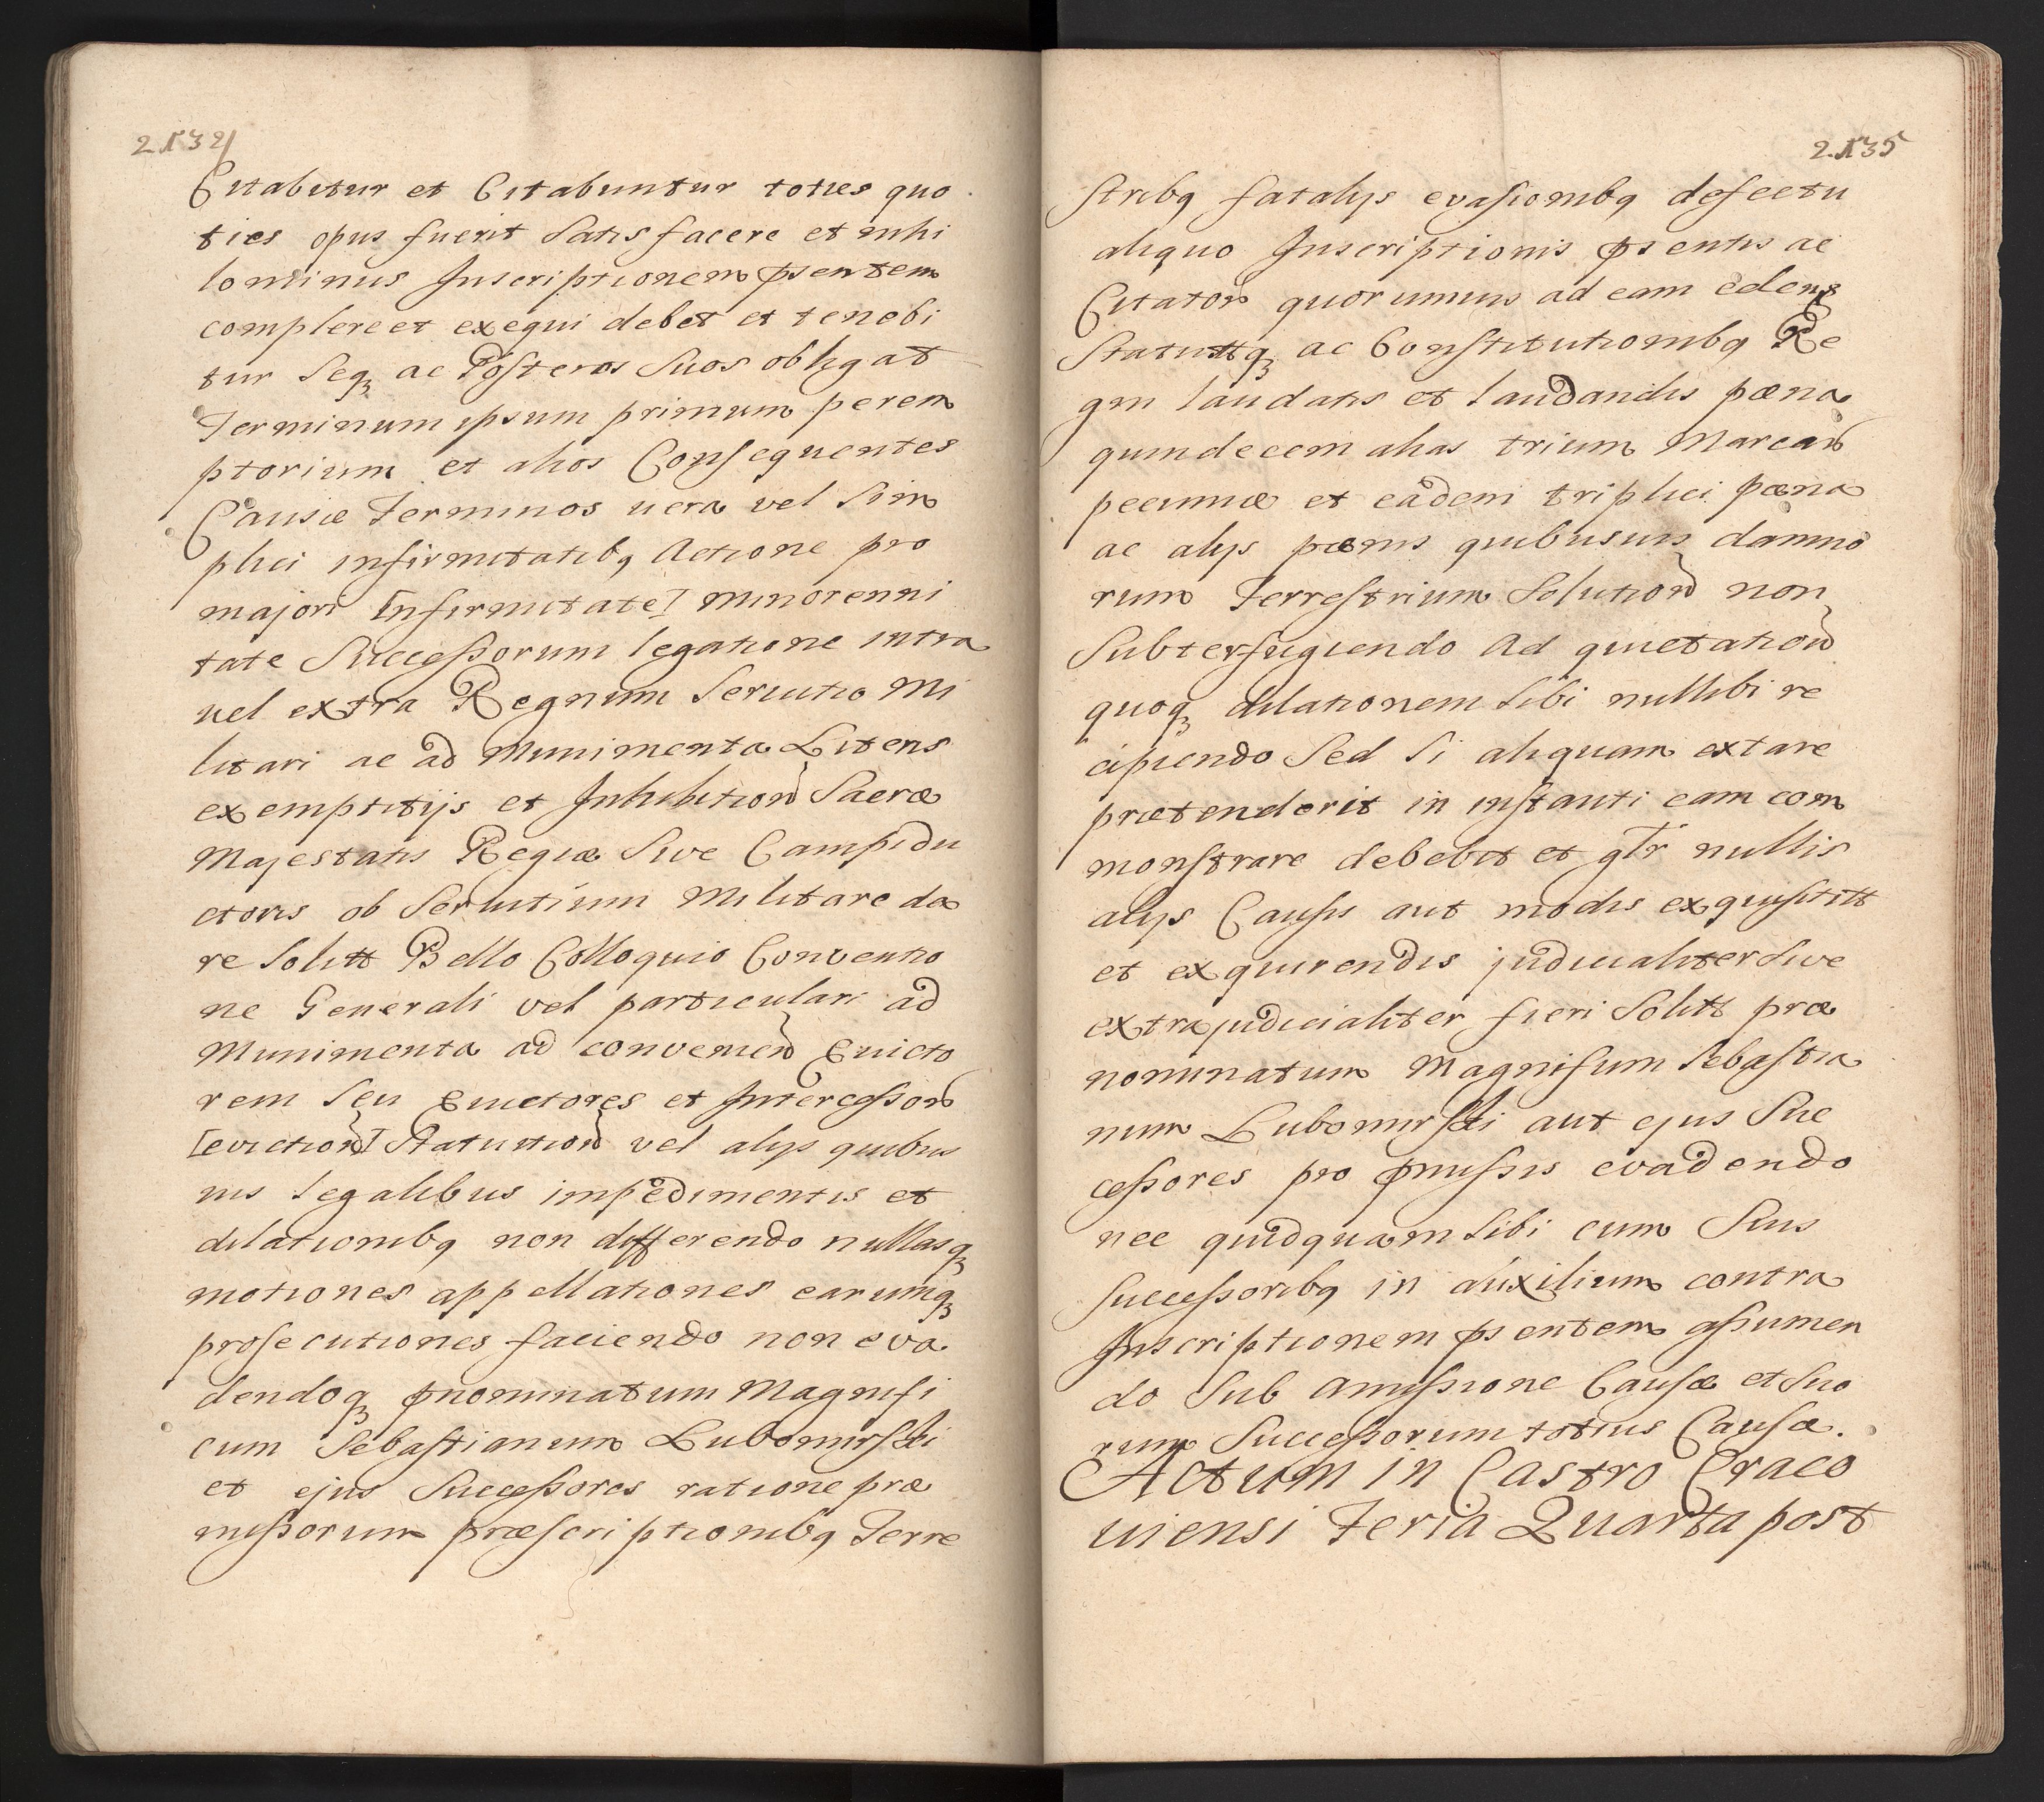 2134
Citabitur et Citabuntur toties quo
ties opus fuerit Satis facere et nihi
lominus Inscriptionem pñsentem
complere et exequi debet et tenebi
tur Seqȝ ac Posteros Suos obligat
Terminum ipsum primum perem
ptorium et alios Consequentes
Causæ Terminos vera vel Sim
plici infirmitatibq Actione pro
majori [Infirmitate] minorenni
tate Successorum legatione intra
vel extra Regnum Servitio Mi
litari ac ad Munimenta Litens
exemptitijs et Inhibition Sacræ
Majestatis Regiæ Sive Campidu
ctoris ob Servitium Militare da
re Solitt Bello Colloquio Conventio
ne Generali vel particulari ad
Munimenta ad convenien Evicto
rem Seu Evictores et Intercessor
[eviction] Statuition vel alijs quibus
vis legalibus impedimentis et
dilationibq non differendo nullasqȝ
motiones appellationes earumqȝ
prosecutiones faciendo non eva
dendoqȝ pnominatum Magnifi
cum Sebastianum Lubomirski
et ejus Successores ratione præ
missorum præscriptionibq Terre
2135
stribq fatalijs evasionibq defectu
aliquo Inscriptionis psentis ac
Citation quorumvis ad eam edenȝ
Statuttqȝ ac Constitutionibq Re
gni laudatis et laudandis pæna
quindecem alias trium Marcar
pecuniæ et eadem triplici pæna
ac alijs pænis quibusvis damno
rum Terrestrium Solution non
Subterfugiendo Ad quietation
quoqȝ dilationem Sibi nullibi re
cipiendo Sed Si aliquam extare
prætenderit in instanti eam com
monstrare debebit et gltr nullis
alijs Causis aut modis exquisitt
et exquirendis judicialiter Sive
extrajudicialiter fieri Solitt præ
nominatum Magnifum Sebastia
num Lubomirski aut ejus Suc
cessores pro pmissis evadendo
nec quidquam Sibi cum Suis
Successoribq in auxilium contra
Inscriptionem psentem assumen
do Sub amissione Causæ et Suo
rum Successorum totius Causæ.
Actum in Castro Craco
viensi Feria Quarta post